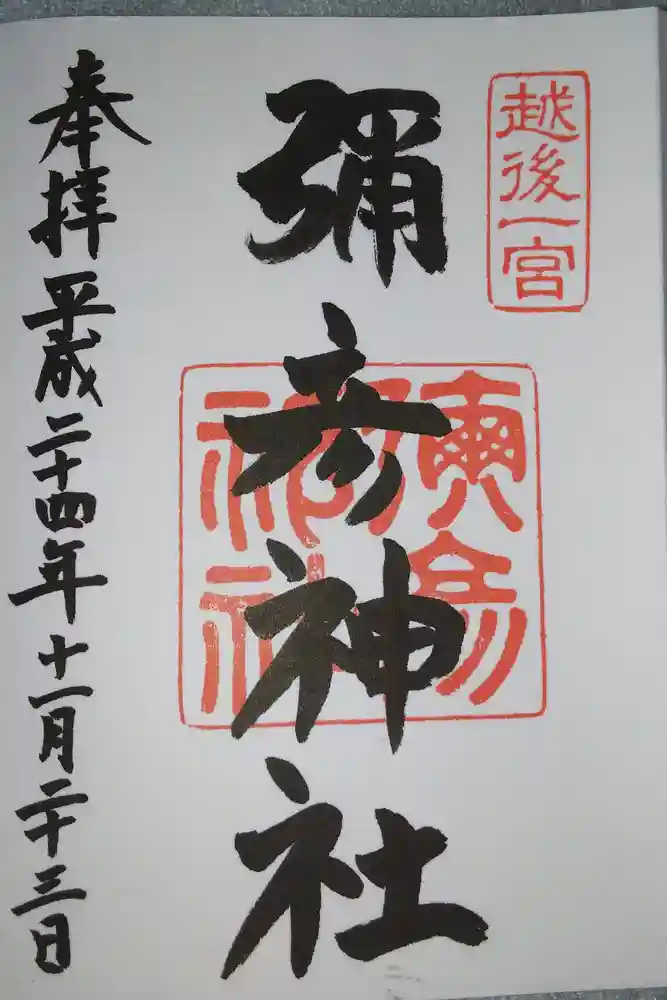 越後一宮
彌彦神社
奉拝平成二十四年十一月二十三日